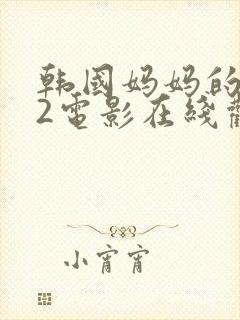 韩国妈妈的
2电影在线
小宵宵